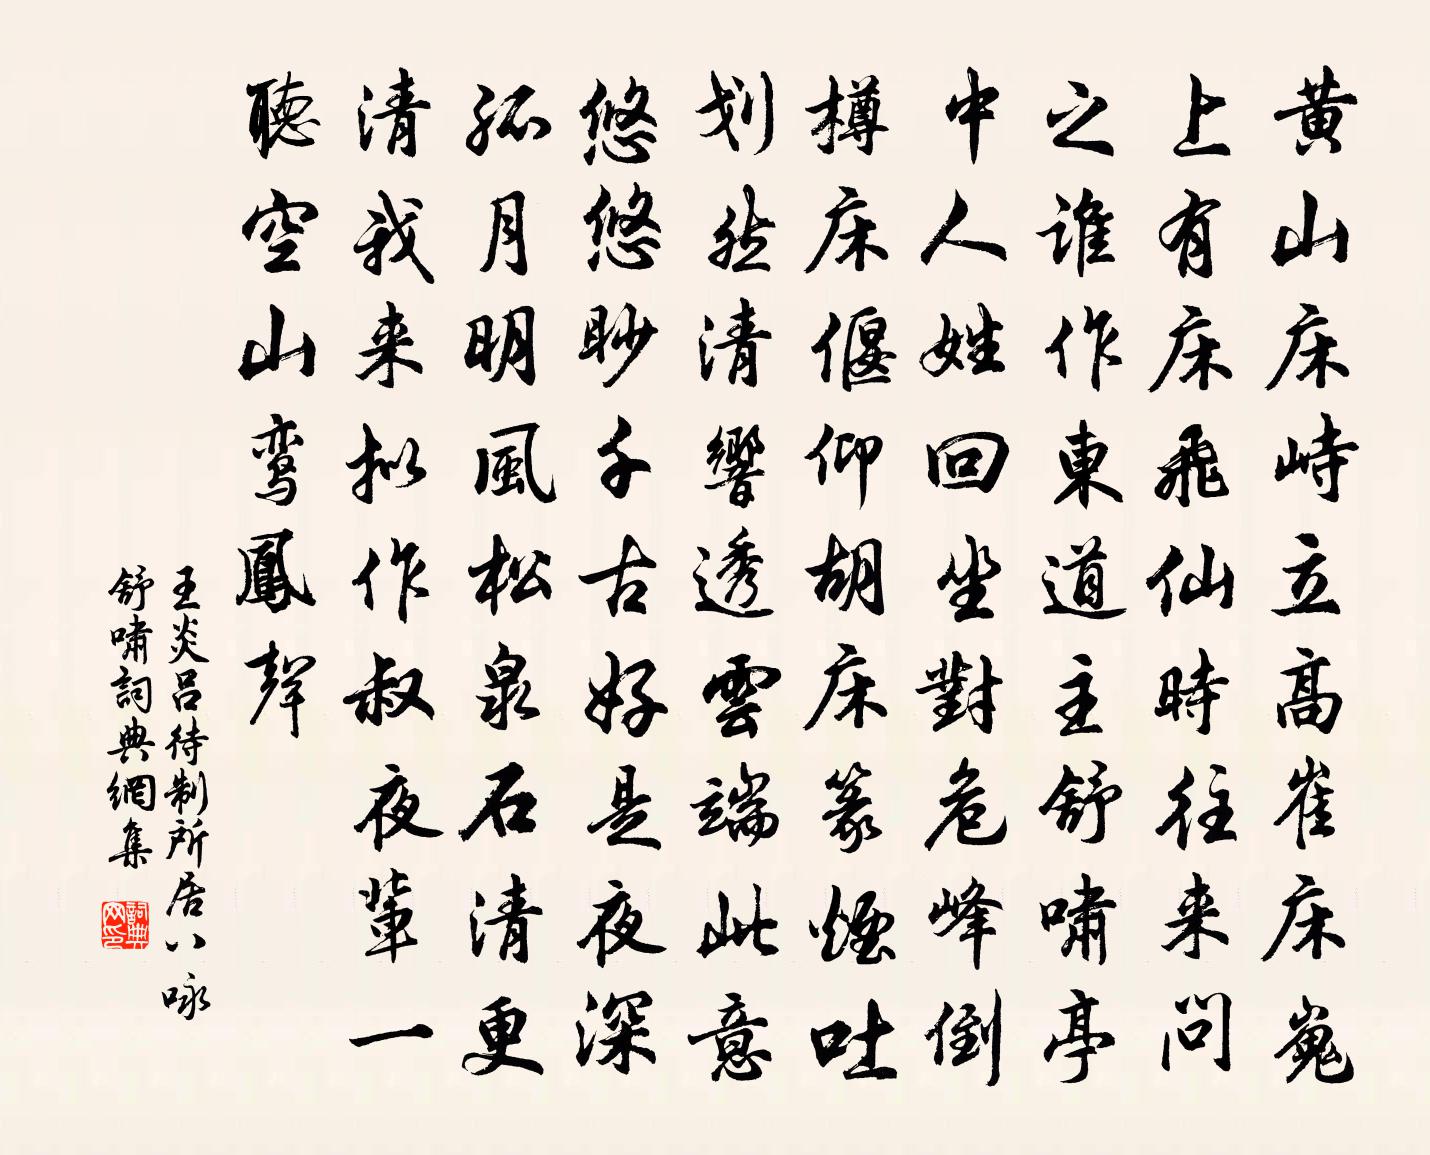 黄山床峙立高崔床嵬
上有床飛仙時往来问
之谁作東道主舒啸亭
中人姓回坐對危峰倒
樽床偃仰胡床篆煙吐
划然清響透雲端此意
悠悠眇千古好是夜深
孤月明風松泉石清更
清我来拟作叔夜辈一
聽空山鸾鳳聲
王炎吕待制所居八咏
舒啸詞典網集
詞典
网印